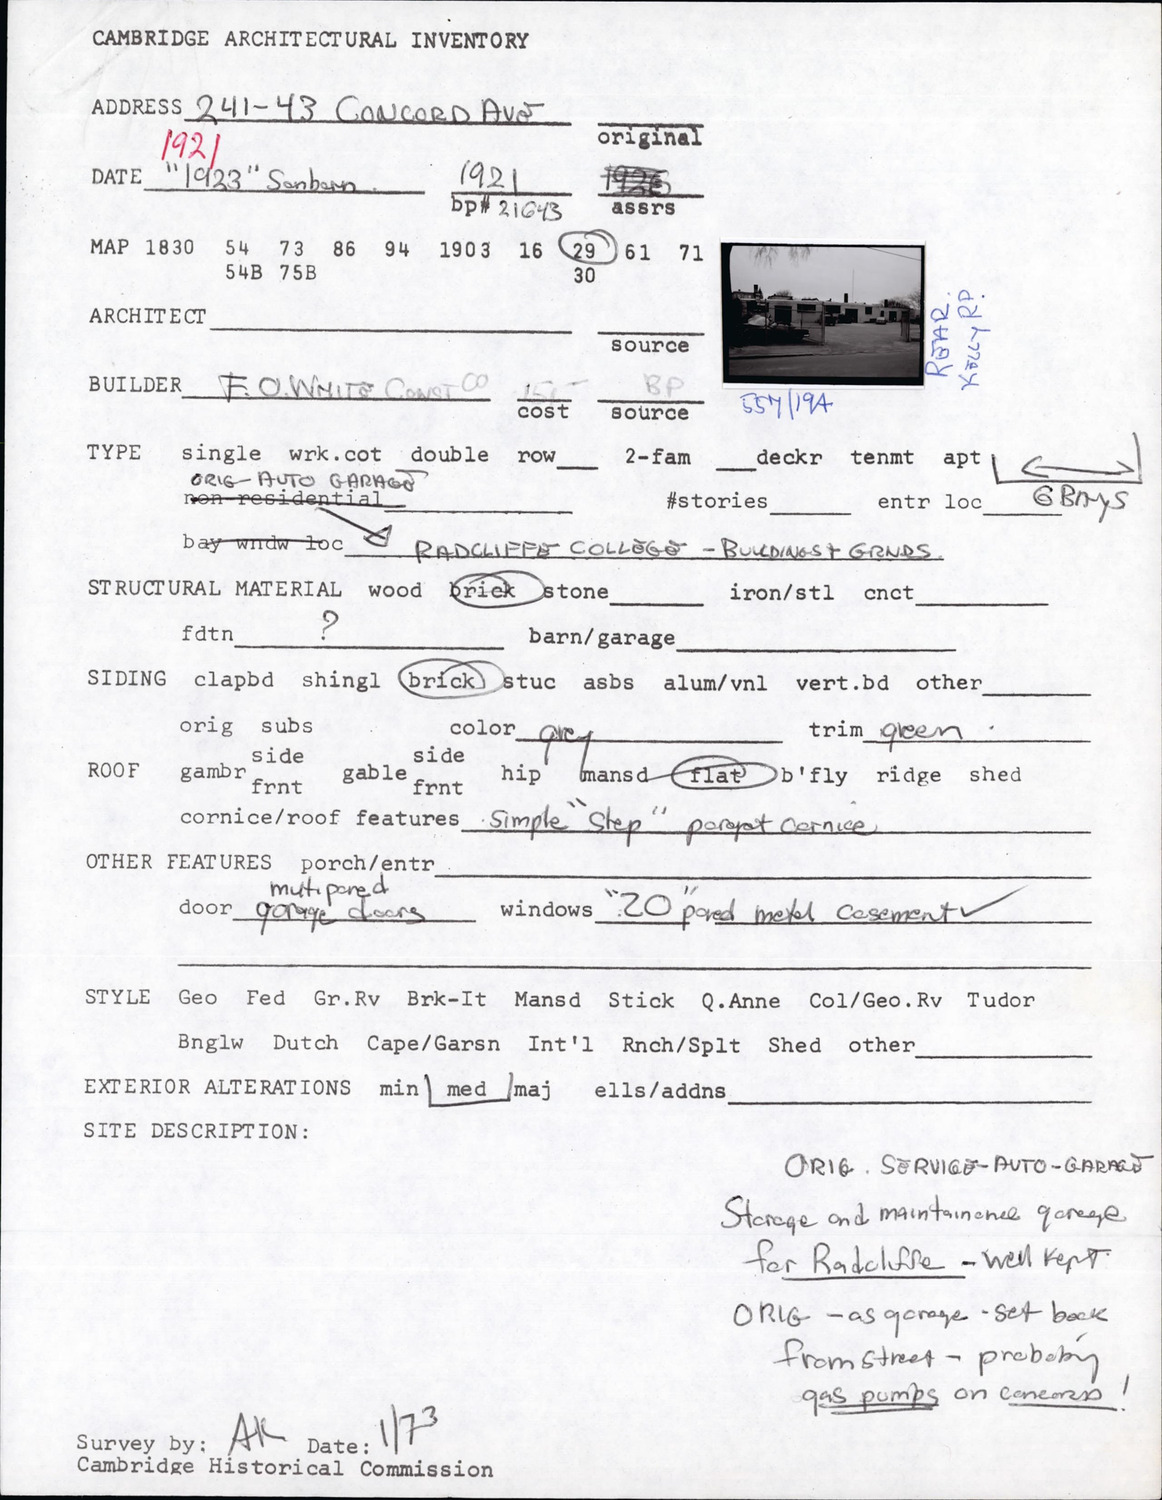 CAMBRIDGE ARCHITECTURAL INVENTORY
ADDRESS 241-43 CONCORD AVE
original
1921
DATE "1923" Sanborn 1921 1926
bp# 21643 assrs
MAP 1830 54 73 86 94 1903 16 29 61 71
54B 75B 30
ARCHITECT
source
REAR.
KELLY RD.
BUILDER F.O. WHITE CONST CO BP
cost source
557/19A
TYPE single wrk.cot double row 2-fam deckr tenmt apt
ORIG-AUTO GARAGE
non-residential #stories entr loc 6 BAYS
bay wndw loc RADCLIFFE COLLEGE - BUILDINGS + GRNDS.
STRUCTURAL MATERIAL wood brick stone iron/stl cnct
fdtn ? barn/garage
SIDING clapbd shingl brick stuc asbs alum/vnl vert.bd other
orig subs color grey trim green
side side
ROOF gambr gable hip mansd flat b'fly ridge shed
frnt frnt
cornice/roof features Simple "Step" parapet cornice
OTHER FEATURES porch/entr
multipaned
door garage doors windows "20" paned metal casement ✓
STYLE Geo Fed Gr.Rv Brk-It Mansd Stick Q.Anne Col/Geo.Rv Tudor
Bnglw Dutch Cape/Garsn Int'l Rnch/Splt Shed other
EXTERIOR ALTERATIONS min med maj ells/addns
SITE DESCRIPTION:
ORIG. SERVICE-AUTO-GARAGE
Storage and maintainence garage
for Radcliffe - well kept.
ORIG - as garage - set back
from street - probably
gas pumps on concord!
Survey by: AK Date: 1/73
Cambridge Historical Commission